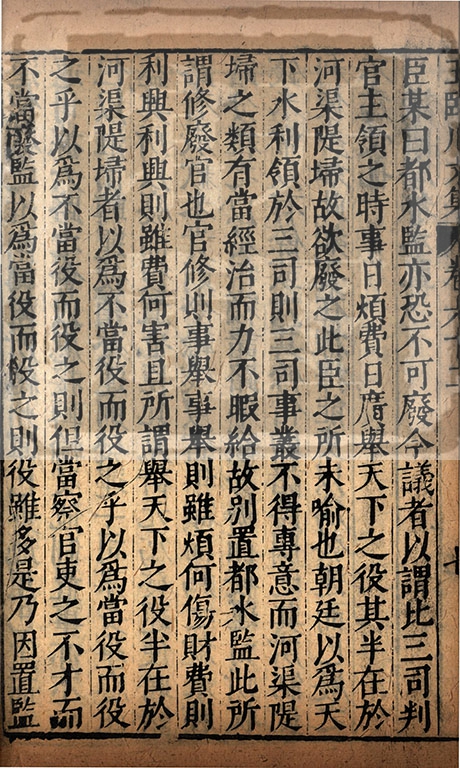 王臨川文集 卷六十二
臣某曰都水監亦恐不可廢今議者以謂比三司判
官主領之時事日煩費日廣舉天下之役其半在於
河渠隄埽故欲廢之此臣之所未喻也朝廷以爲天
下水利領於三司則三司事叢不得專意而河渠隄
埽之類有當經治而力不暇給故別置都水監此所
謂修廢官也官修則事舉事舉則雖煩何傷財費則
利興利興則雖費何害且所謂舉天下之役半在於
河渠隄埽者以爲不當役而役之乎以爲當役而役
之乎以爲不當役而役之則但當察官吏之不才而
不當廢監以爲當役而役之則役雖多是乃因置監